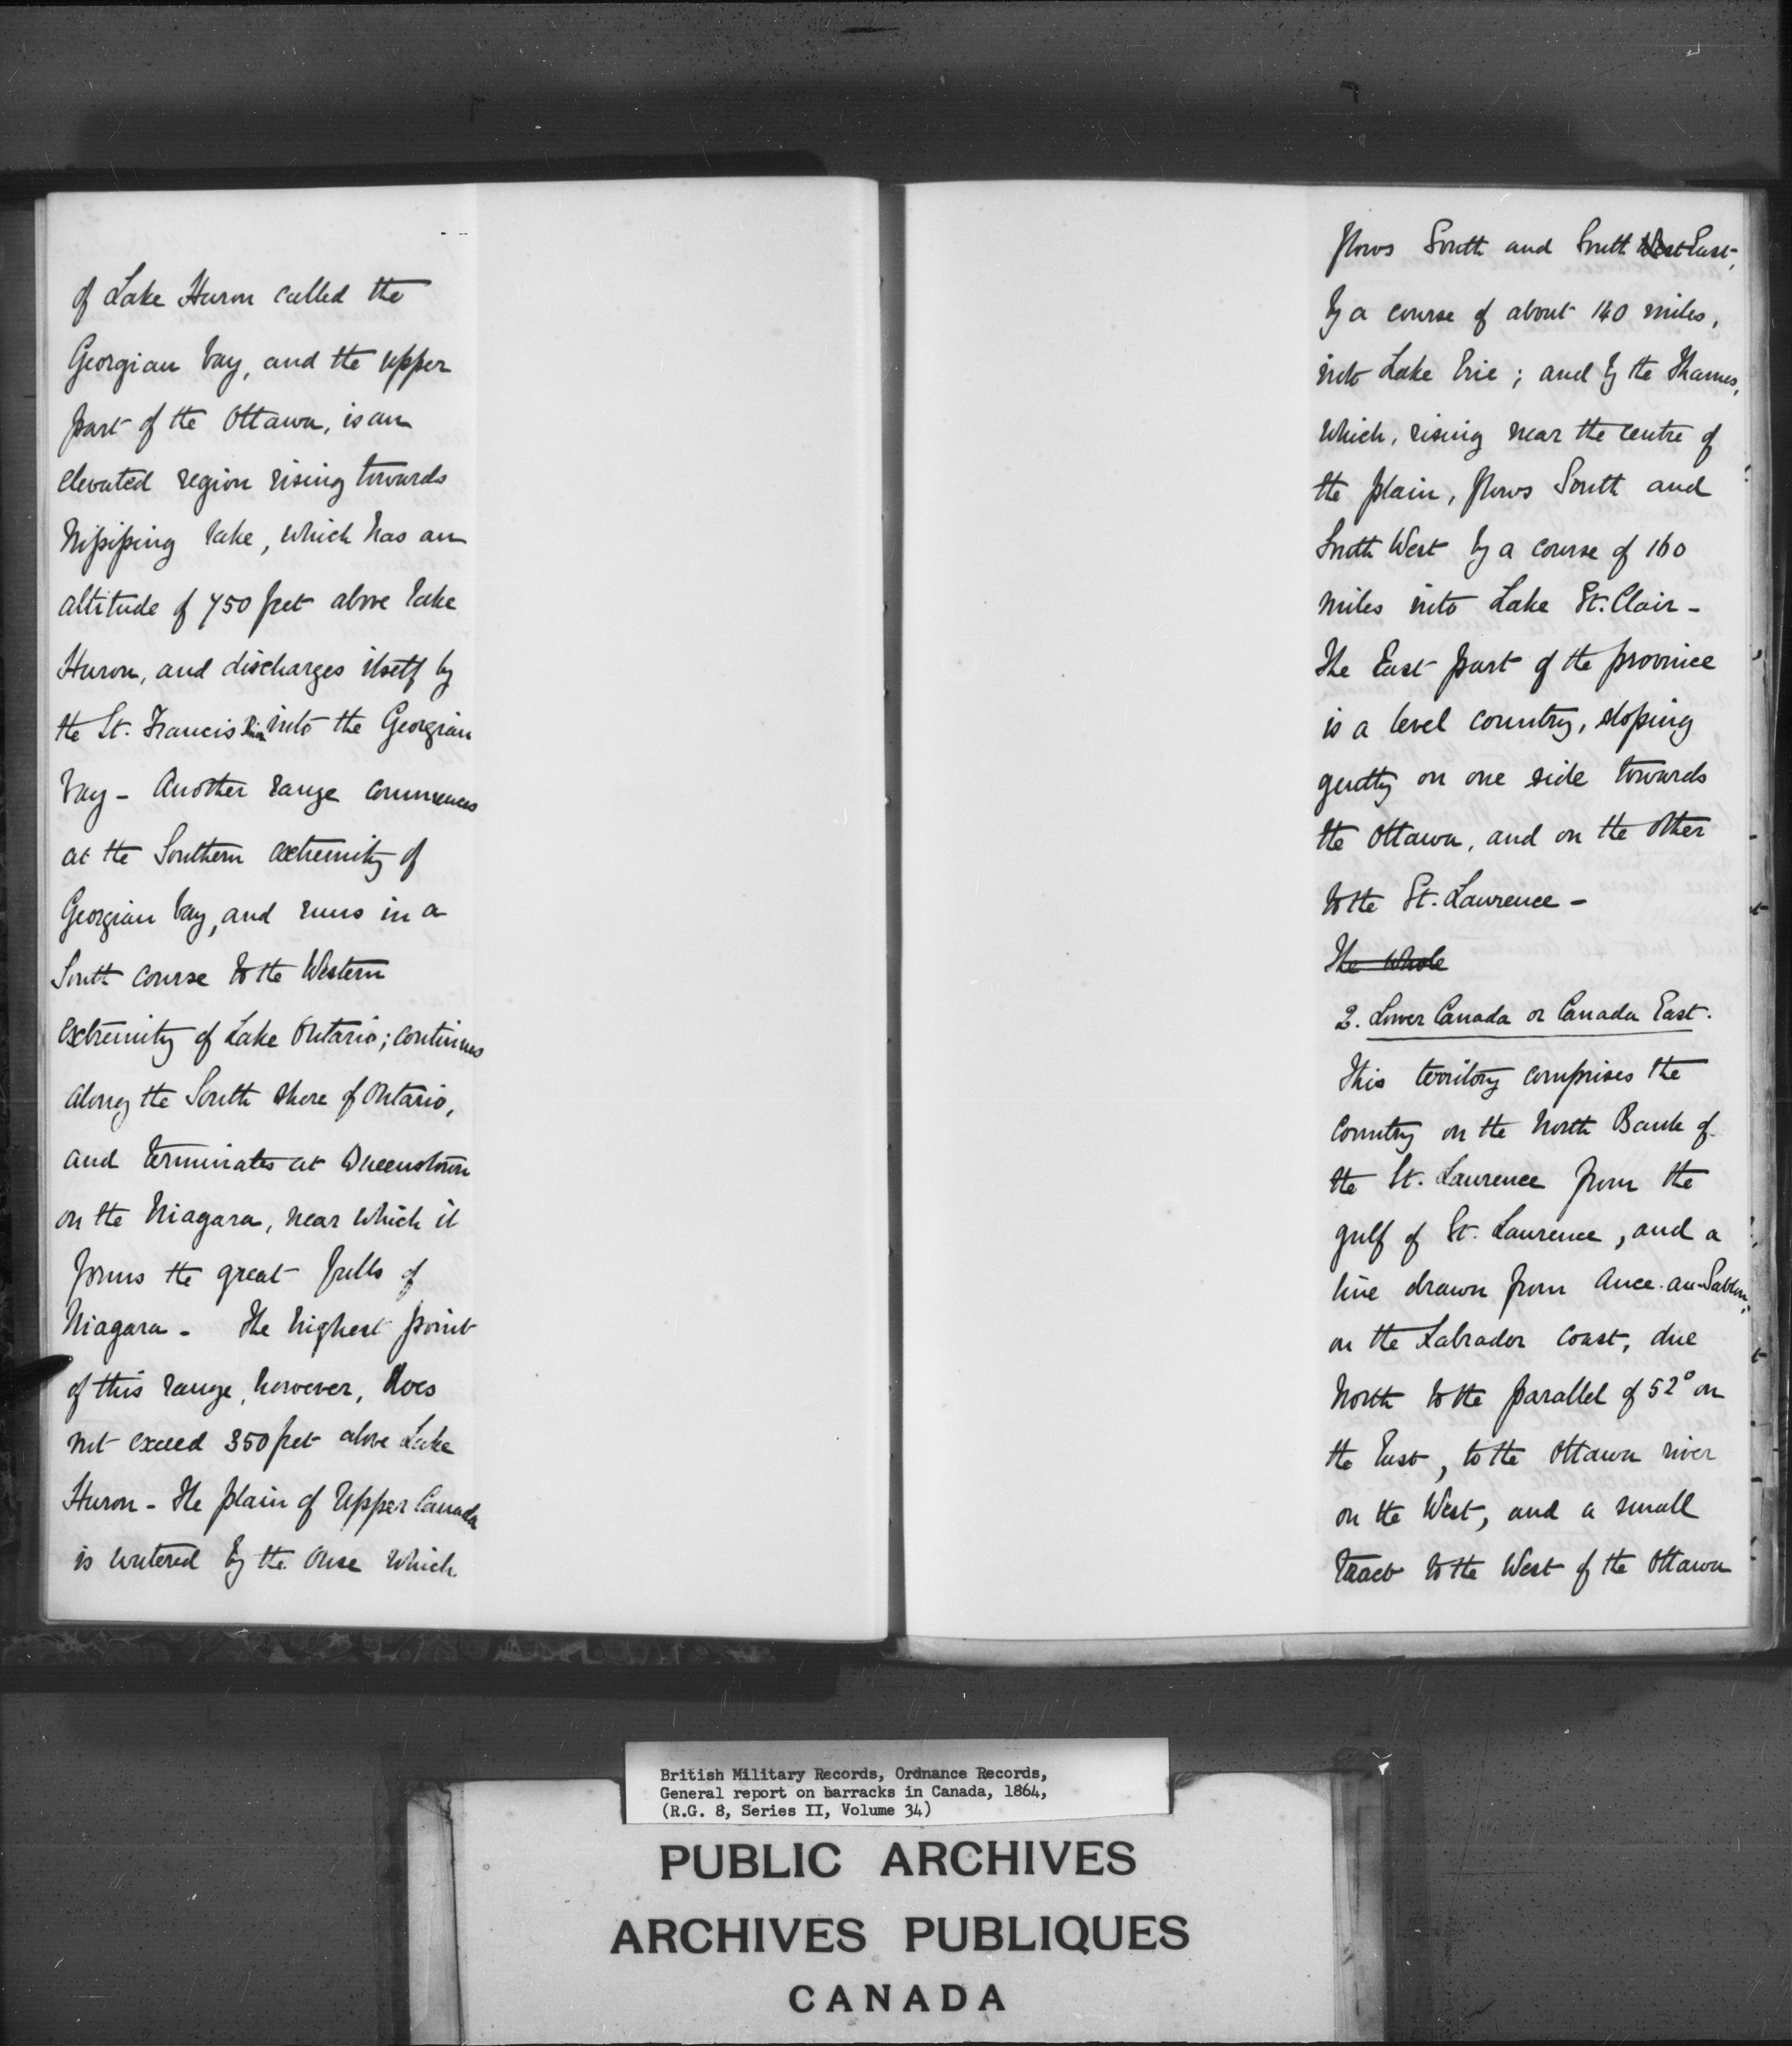 of Lake Huron called the
Georgian bay, and the upper
part of the Ottawa, is an
elevated region rising towards
Nipissing lake, which has an
altitude of 750 feet above lake
Huron, and discharges itself by
the St. Francis Riv. into the Georgian
bay - Another range commences
at the Southern extremity of
Georgian bay, and runs in a
South course to the Western
extremity of Lake Ontario; continues
along the South shore of Ontario,
and terminates at Queenstown
on the Niagara, near which it
forms the great falls of
Niagara - The highest point
of this range, however, does
not exceed 350 feet above Lake
Huron - The plain of Upper Canada
is watered by the Ouse which
flows South and South West East,
by a course of about 140 miles,
into Lake Erie; and by the Thames,
which, rising near the centre of
the plain, flows South and
South West by a course of 160
miles into Lake St. Clair -
The East part of the province
is a level country, sloping
gently on one side towards
the Ottawa, and on the other
to the St. Lawrence -
The whole
2. Lower Canada or Canada East.
This territory comprises the
Country on the North Bank of
the St. Lawrence from the
gulf of St. Lawrence, and a
line drawn from Ance-au-Sablon,
on the Labrador coast, due
North to the parallel of 52° on
the East, to the Ottawa river
on the West, and a small
tract to the West of the Ottawa
British Military Records, Ordnance Records,
General report on barracks in Canada, 1864,
(R.G. 8, Series II, Volume 34)
PUBLIC ARCHIVES
ARCHIVES PUBLIQUES
CANADA